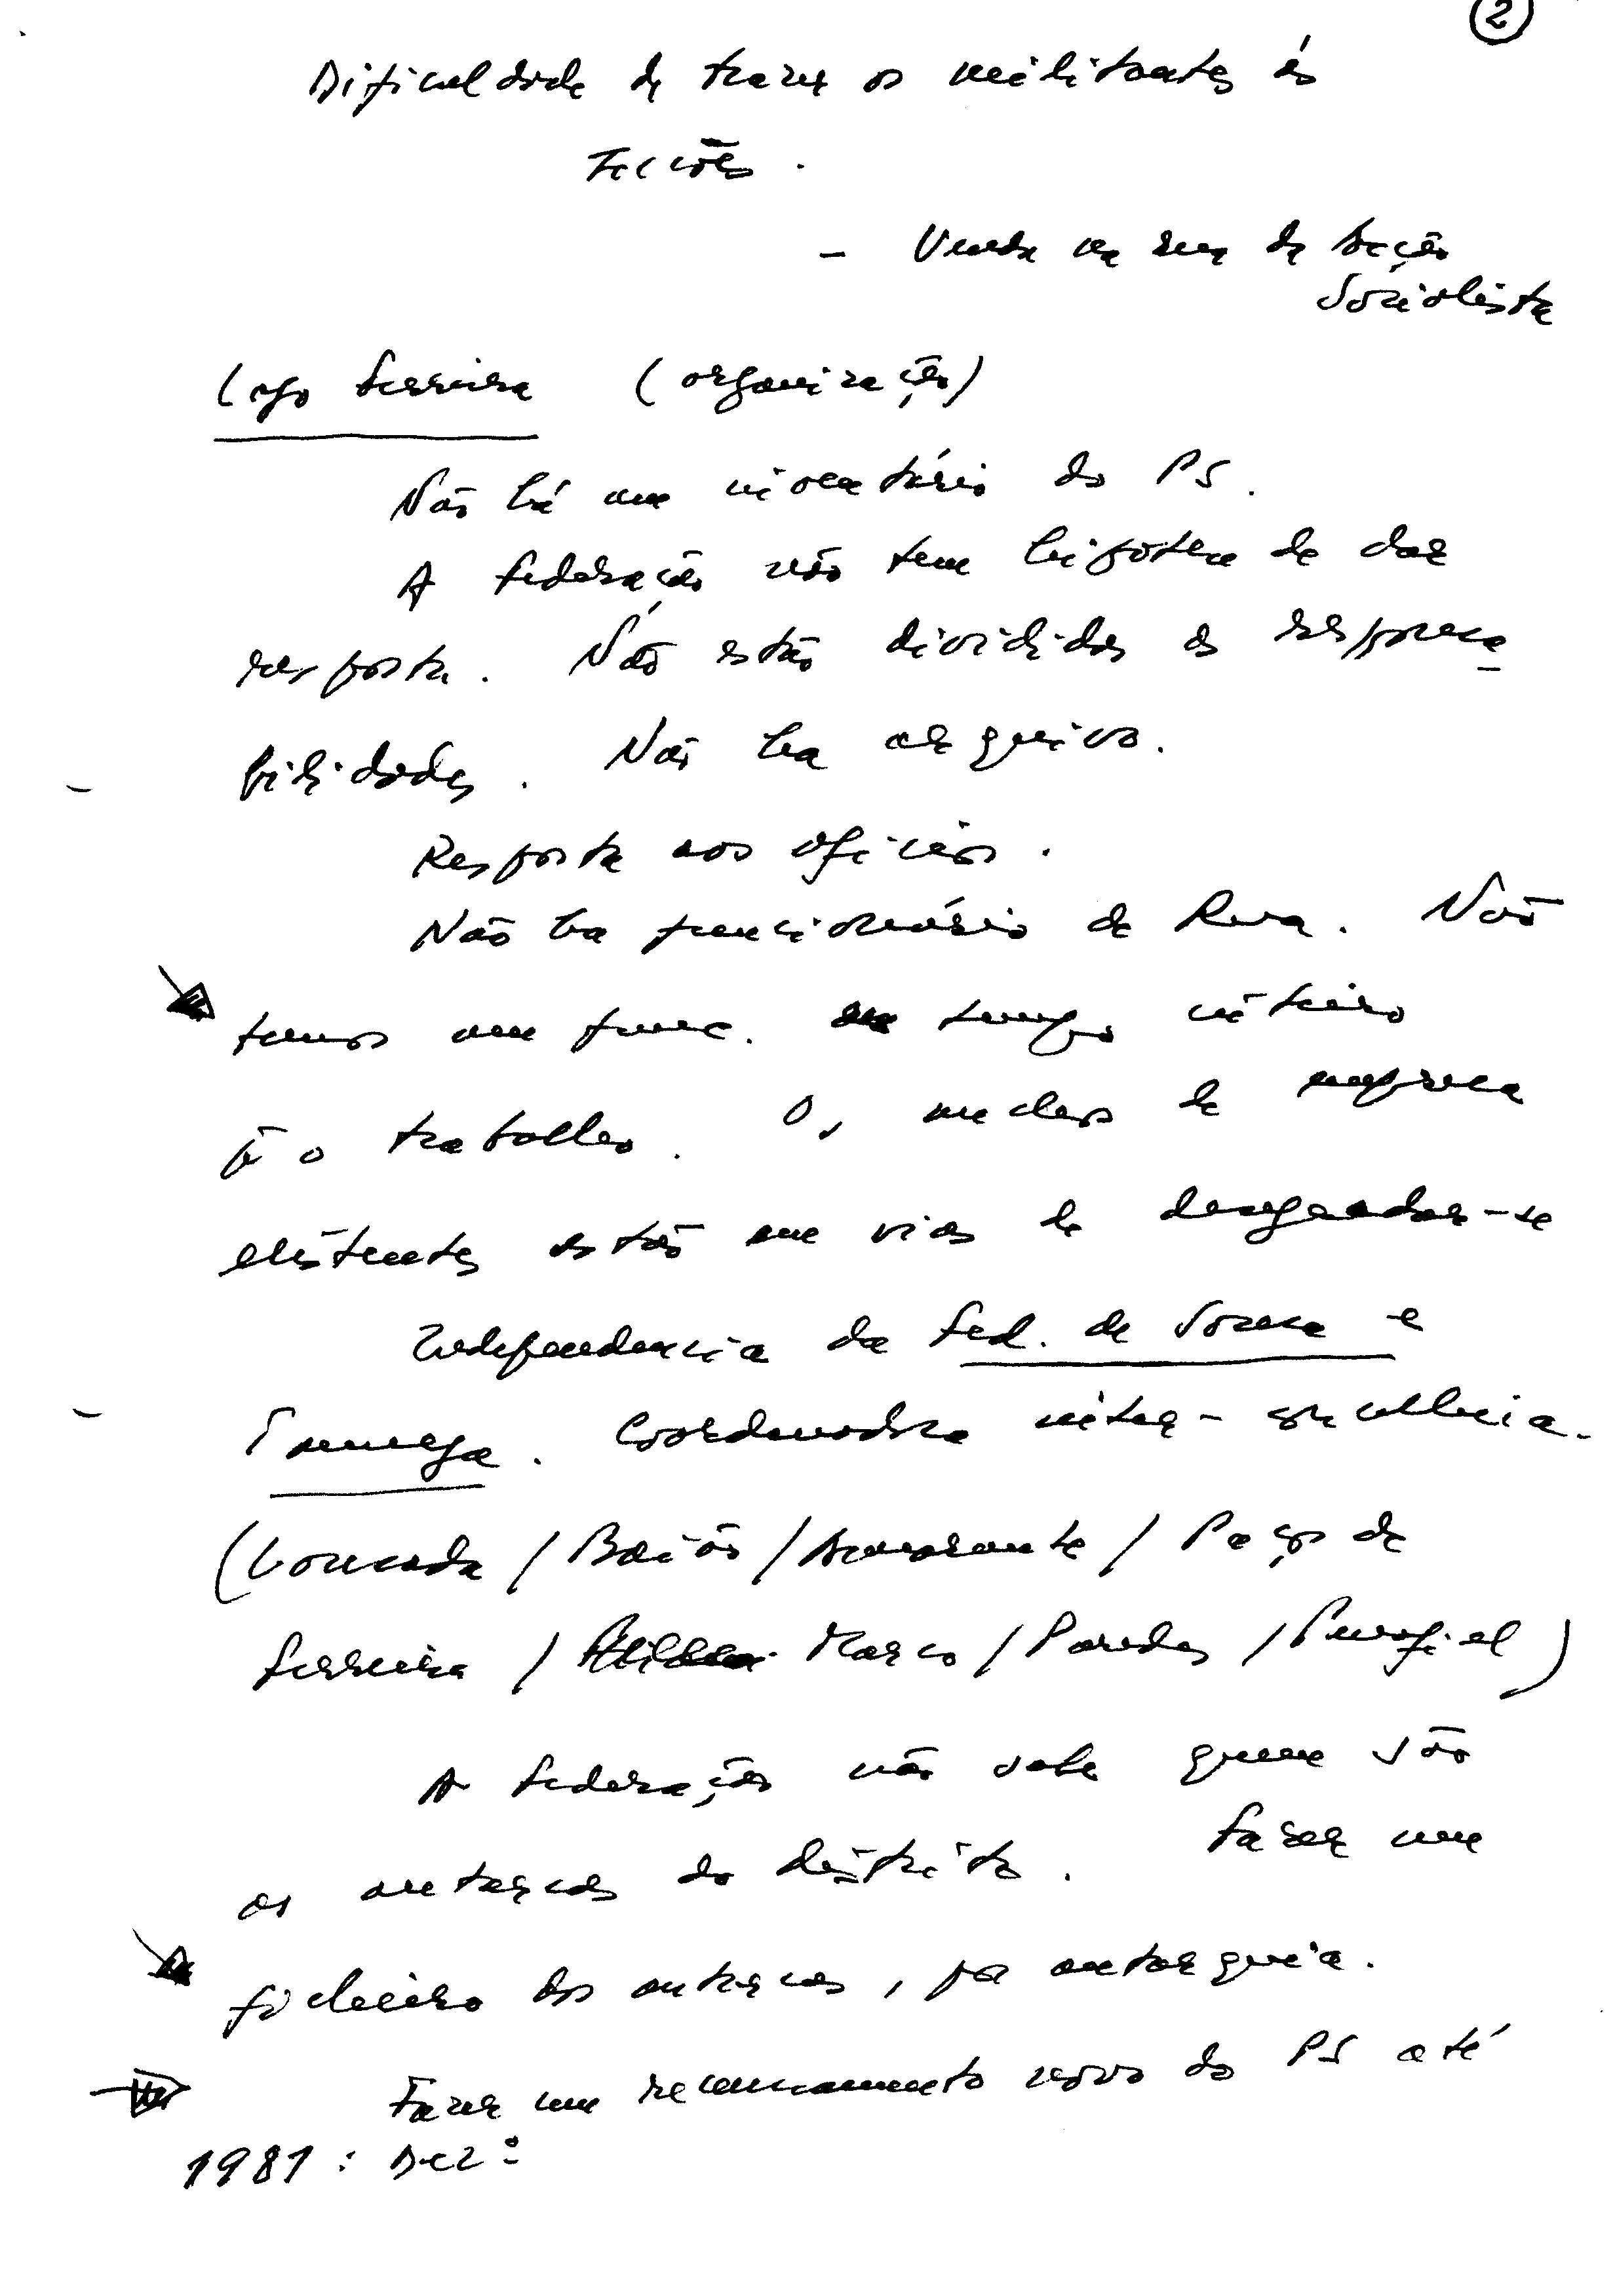 2
Dificuldade de trazer os militantes às
secções.
- Venda na rua da Acção
Socialista
Lago Ferreira (organização)
Não há um inventário do PS.
A Federação não tem hipótese de dar
resposta. Não estão divididas as responsa
bilidades. Não ha arquivo.
Resposta aos ofícios.
Não ha funcionário de Rua. Não
temos um func. tempo inteiro
p.ª o trabalho. Os nucleos de empresa
existentes estão em vias de desagradar-se
Independencia da Fed. de Sousa e
Tamega. Coordenadora inter-concelhia.
(Lousada / Baião / Amarante / Paços de
Ferreira / Marco / Paredes / Penafiel)
A Federação não sabe quem são
os autarcas do distrito. Fazer um
ficheiro dos autarcas, por autarquia.
Fazer um recenseamento novo do PS até
1981: Dez.º